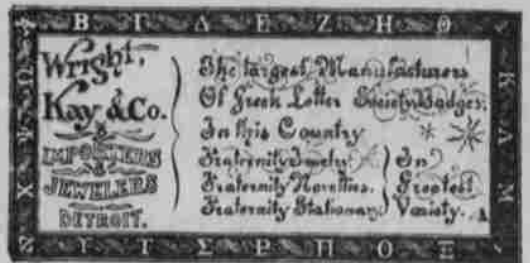 B Γ Δ E Z H Θ
Wright,
Kay & Co.
IMPORTERS
&
JEWELERS
DETROIT.
The Largest Manufacturers
Of Greek Letter Society Badges.
In this Country
Fraternity Jewelry
Fraternity Novelties.
Fraternity Stationary.
In
Greatest
Variety.
K Λ M
Ξ O Π P Σ T Y
X Ω